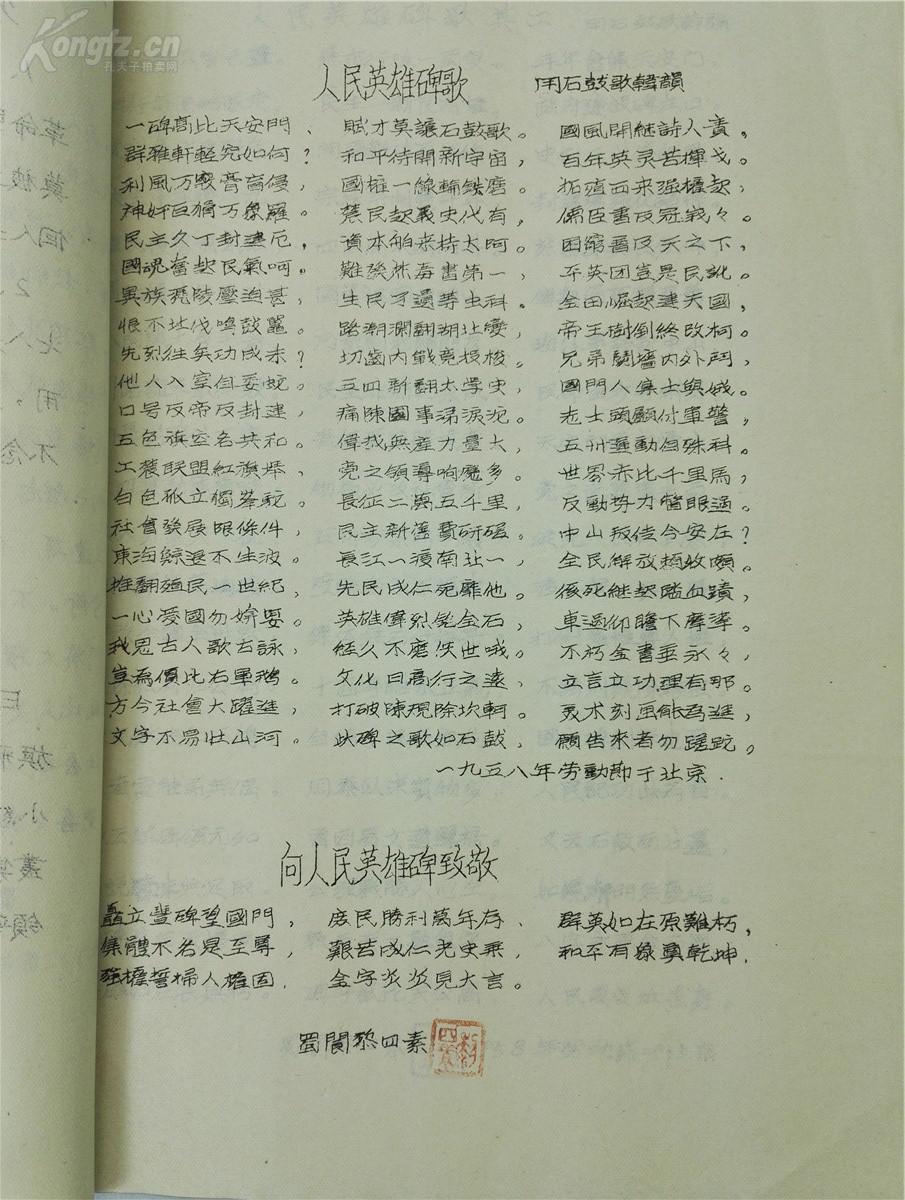 Kongfz.cn
孔夫子拍卖网
人民英雄碑歌 用石鼓歌韓韻
一碑高比天安門、 賦才莫讓石鼓歌。 國風開繼詩人責，
群雅軒輊究如何？ 和平待開新宇宙， 百年英灵苦揮戈。
利風万竅膏肓侵， 國權一線輪鉄磨。 拓殖西来强權起，
神奸百獨万象羅。 農民起義史代有， 儒臣書反冠峩々。
民主久丁封建厄， 資本舶来持太阿。 困窮普及天之下，
國魂奮起民氣呵。 難 海書第一， 平英团豈是民訛。
異族憑陵壓迫甚， 生民才過等虫科。 金田崛起建天國，
恨不北伐鳴鼓鼉。 路潮瀾翻湖北變， 帝王樹倒終改柯。
先烈往矣功成未？ 切齒内戦竞投梭。 兄弟鬩墻内外鬥，
他人入室但委蛇。 五四新翻太学史， 國門人集士與娥。
口号反帝反封建， 痛陳國事涕淚沱。 志士頭顱付軍警，
五色旗空名共和。 偉哉無產力量大， 五卅運動自殊科。
工農联盟紅旗舉， 党之領導响應多。 世界赤比千里馬，
白色孤立獨峯駝。 長征二萬五千里， 反動势力瞥眼過。
社會發展眼條件， 民主新舊費研磋。 中山叛徒今安在？
東海鯨退不生波。 長江一渡南北一， 全民解放頼牧頗。
推翻殖民一世紀， 先民成仁死靡他。 後死継起踏血蹟，
一心愛國勿媕婀。 英雄偉烈勒金石， 車過仰瞻下摩挲。
我思古人歌古詠， 經久不磨佚世哦。 不朽金書垂永々，
豈為價比右軍鵝。 文化日高行之遠， 立言立功理有那。
方今社會大躍進， 打破陳規除坎軻。 美术刻画能為進，
文字不易壮山河。 此碑之歌如石鼓， 願告來者勿蹉跎。
一九五八年劳動節于北京.
向人民英雄碑致敬
矗立豐碑望國門， 庶民勝利萬年存、 群英如在原難朽，
集體不名是至尊， 艱苦成仁光史乘， 和平有象奠乾坤.
强權誓掃人權固. 金字炎炎見大言。
蜀閬黎四素